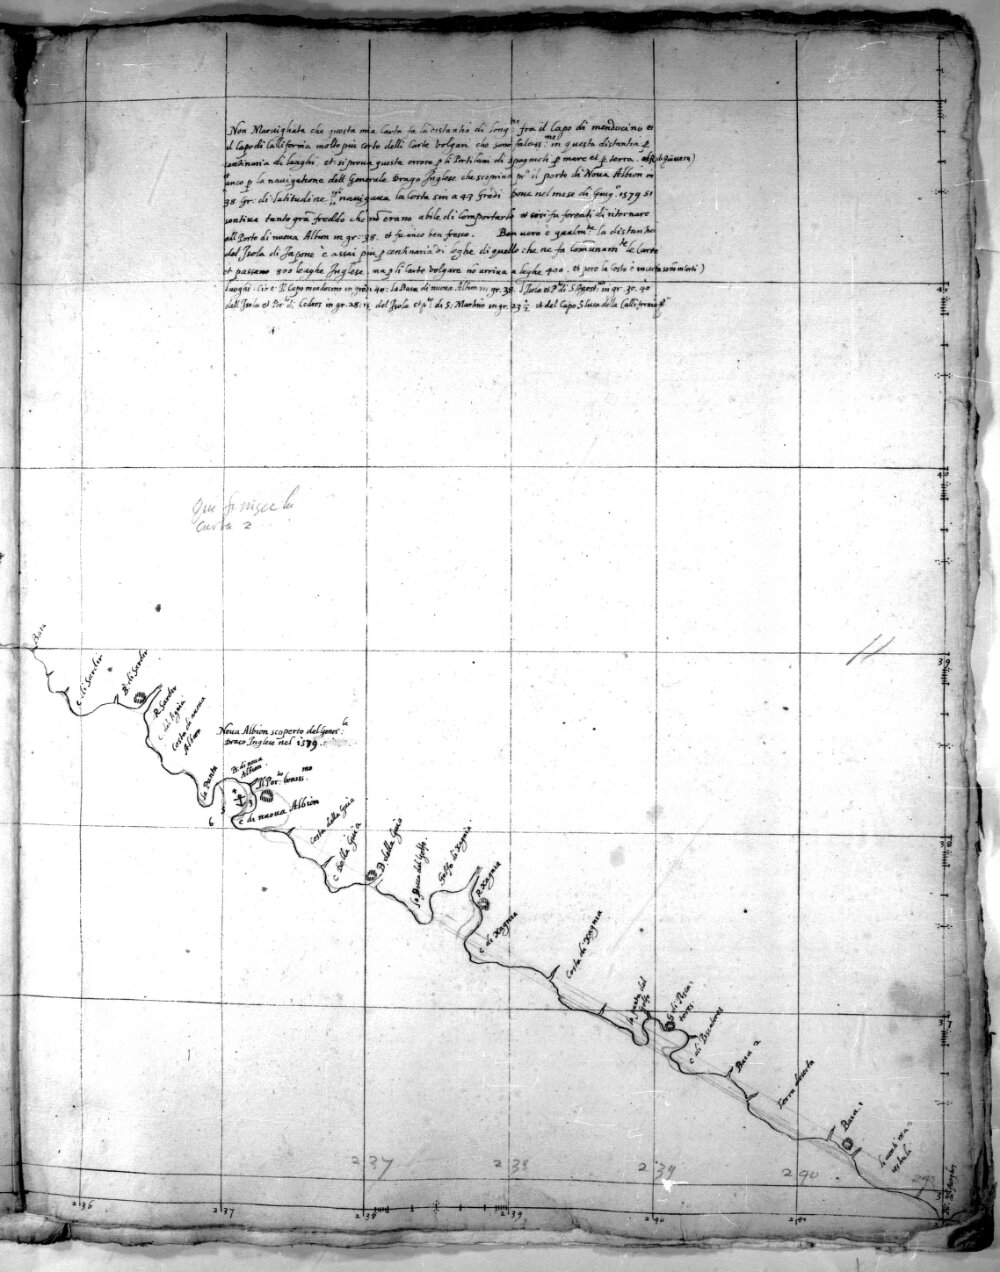 Non Marvighate che questa mia Carta fa la distantia di long.ne fra il Capo di mendocino et
il Capo di California molto piu corto delli Carte volgari che sono falciss:me in questa distantia p
centinaria di leaghi et si prova questa errore p li Portilani di Spagnioli p mare et p terra.
anco p la navigatione dell Generale Drago Inglese che il porto di Nova Albion in
38 Gr: di latitudine navigava la Costa sin a 43 Gradi nel mese di Giug.o 1579 si
sentiva tanto gra freddo che nō erano abile di comportarlo et cosi fu forcati di ritornare
all Porto di nuova Albion in gr: 38. et fu anco ben fresco. Ben vero è qualm.te la distantia
del Isola di Iapone è assai piu p centinaria di leghe di quello che ne fa comunam.te le Carte
et passano 800 leaghe Inglese, ma p li Carte volgare nō arriva a leghe 400.
luoghi. Cioe: Il Capo mendocino in gradi 40: la Baia di nuova Albion in gr. 38. Isola et P.to di S. Agost.o in gr 30.40
dell Isola et Por.to di Cedros in gr. 28:15 del Isola et p.to di S: Martino in gr. 23 ½ et del Capo S luca della California
4
Qui finisce la
Carta 2
3
Baia
C di Sardix
B: di Sardix
R Sardix
C del
Costa di nuova
Albion
Nova Albion scoperto dal Gener:le
Draco Inglese nel 1579.
la Punta
B: di nova
Albion
Il Por:to boniss:mo
6 5 3
C di nuova Albion
Costa della Guia
C della Guia
B della Guia
la Bocca del Golfo
Golfo di Xagnia
R Xagnia
C di Xagnia
Costa di Xagnia
la punta del
Golfo
G di Pesca-
tores
C di Pescatores
Baia 2
Terra
Baia 1
li monti ne-
237 238 239 290
236 237 238 239 240 241